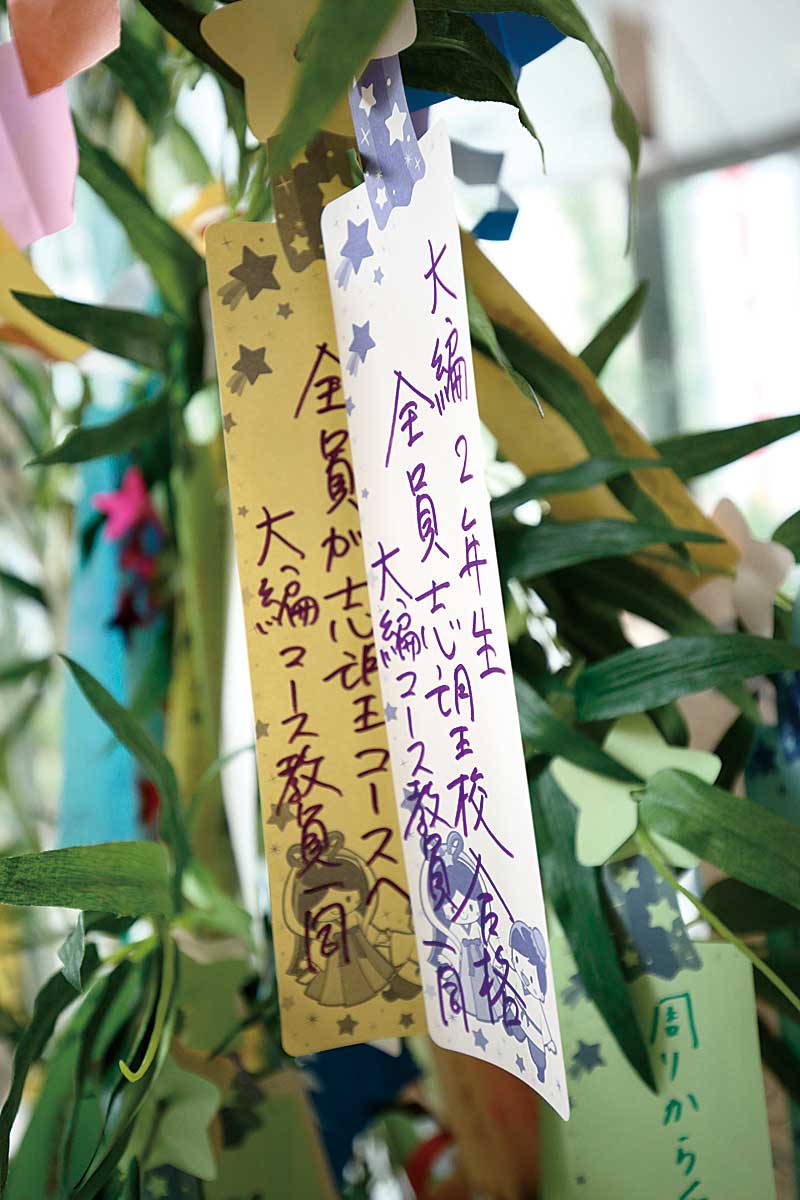 大編2年生
全員志望校合格
大編コース教員一同
全員が志望コースへ
大編コース教員一同
周りから